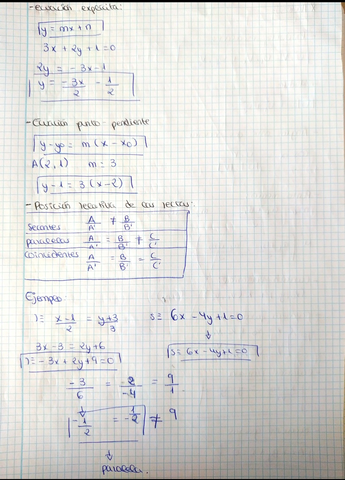 - Ecuación explícita:
y = mx + n
3x + 2y + 1 = 0
2y = -3x - 1
y = -3x/2 - 1/2
- Ecuación punto - pendiente
y - y₀ = m (x - x₀)
A(2, 1) m = 3
y - 1 = 3 (x - 2)
- Posición relativa de dos rectas:
Secantes A/A' ≠ B/B'
paralelas A/A' = B/B' ≠ C/C'
coincidentes A/A' = B/B' = C/C'
Ejemplo:
r ≡ x-1/2 = y+3/3 s ≡ 6x - 4y + 1 = 0
3x - 3 = 2y + 6
r ≡ -3x + 2y + 9 = 0 s ≡ 6x - 4y + 1 = 0
-3/6 = 2/-4 = 9/1
-1/2 = -1/2 ≠ 9
paralelas.